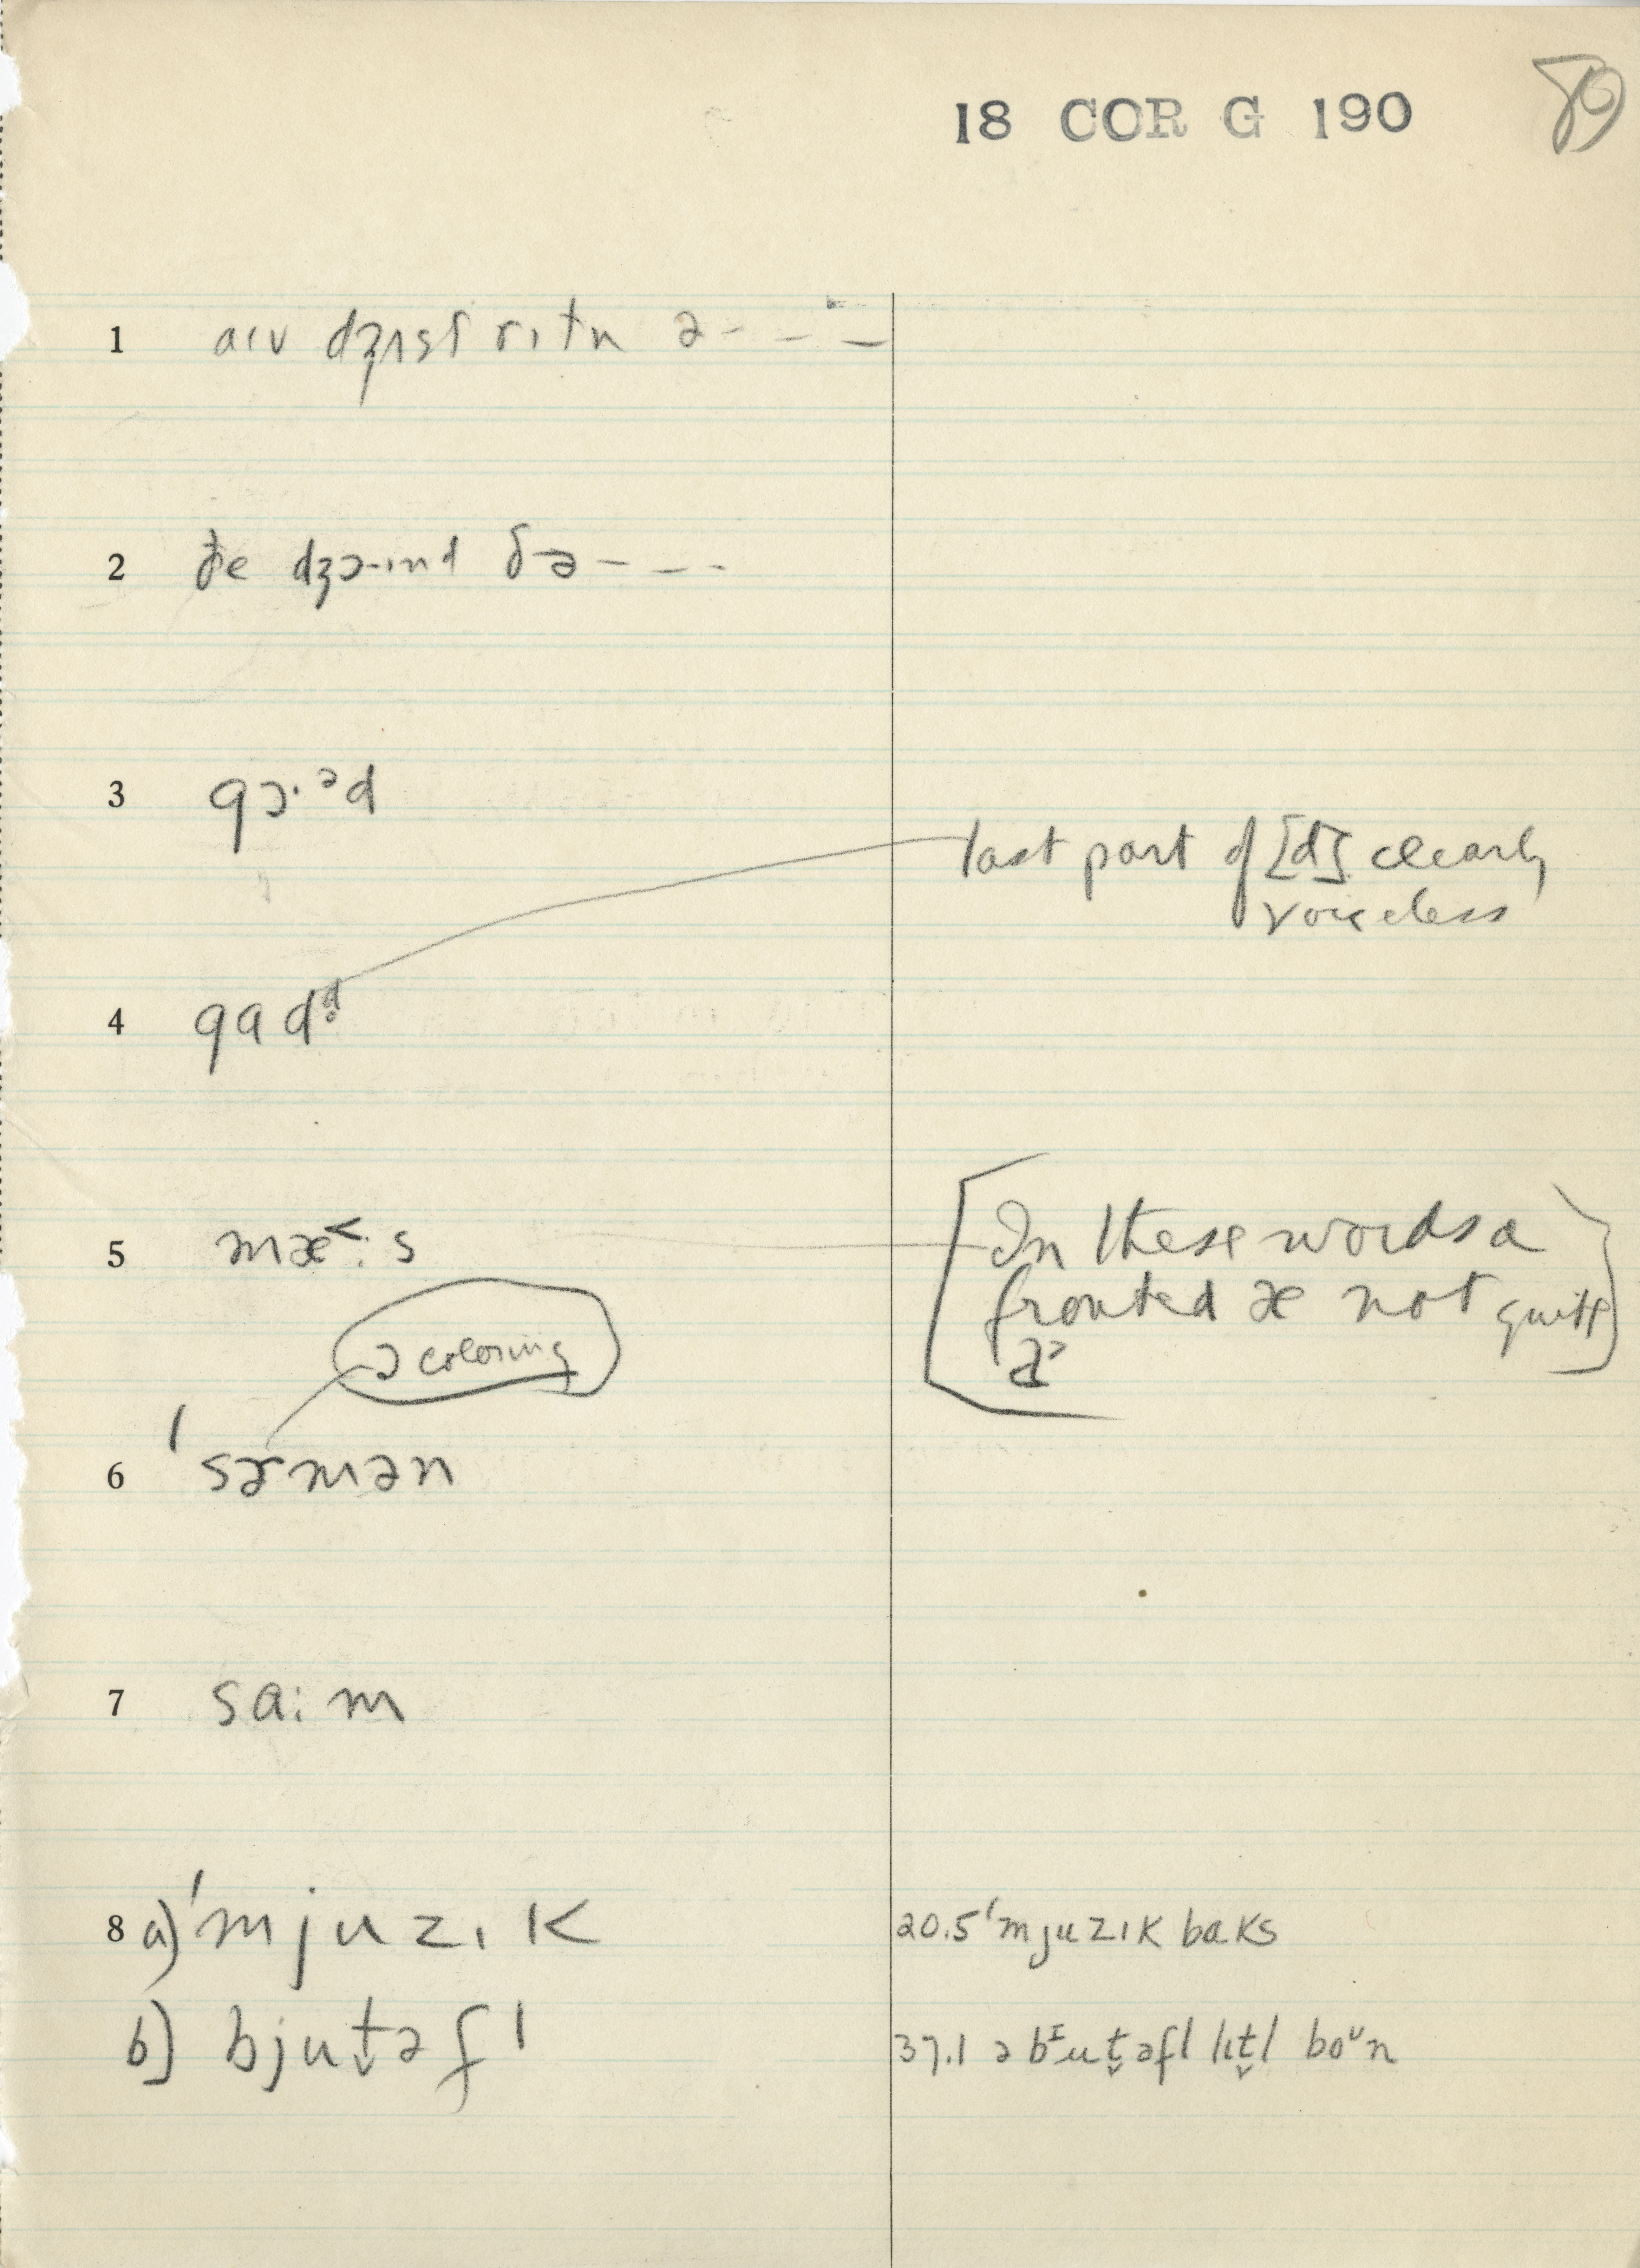 18 COR G 190
89
1 aɪv dʒɪst rɪtn ə - - -
2 ðe dʒɔɪnd ðə - - -
3 gɔ·ᵊd
last part of [d] clearly
voiceless
4 gɑdᵈ̥
5 mæ˂·s
In these words a
fronted æ not quite
a˃
ɔ coloring
6 ˈsɚmən
7 sɑ:m
8 a) ˈmjuzɪk
20.5 ˈmjuzɪk bɑks
b) bjut̬əfl
37.1 ə bᶦut̬əfl lɪt̬l boᵘn